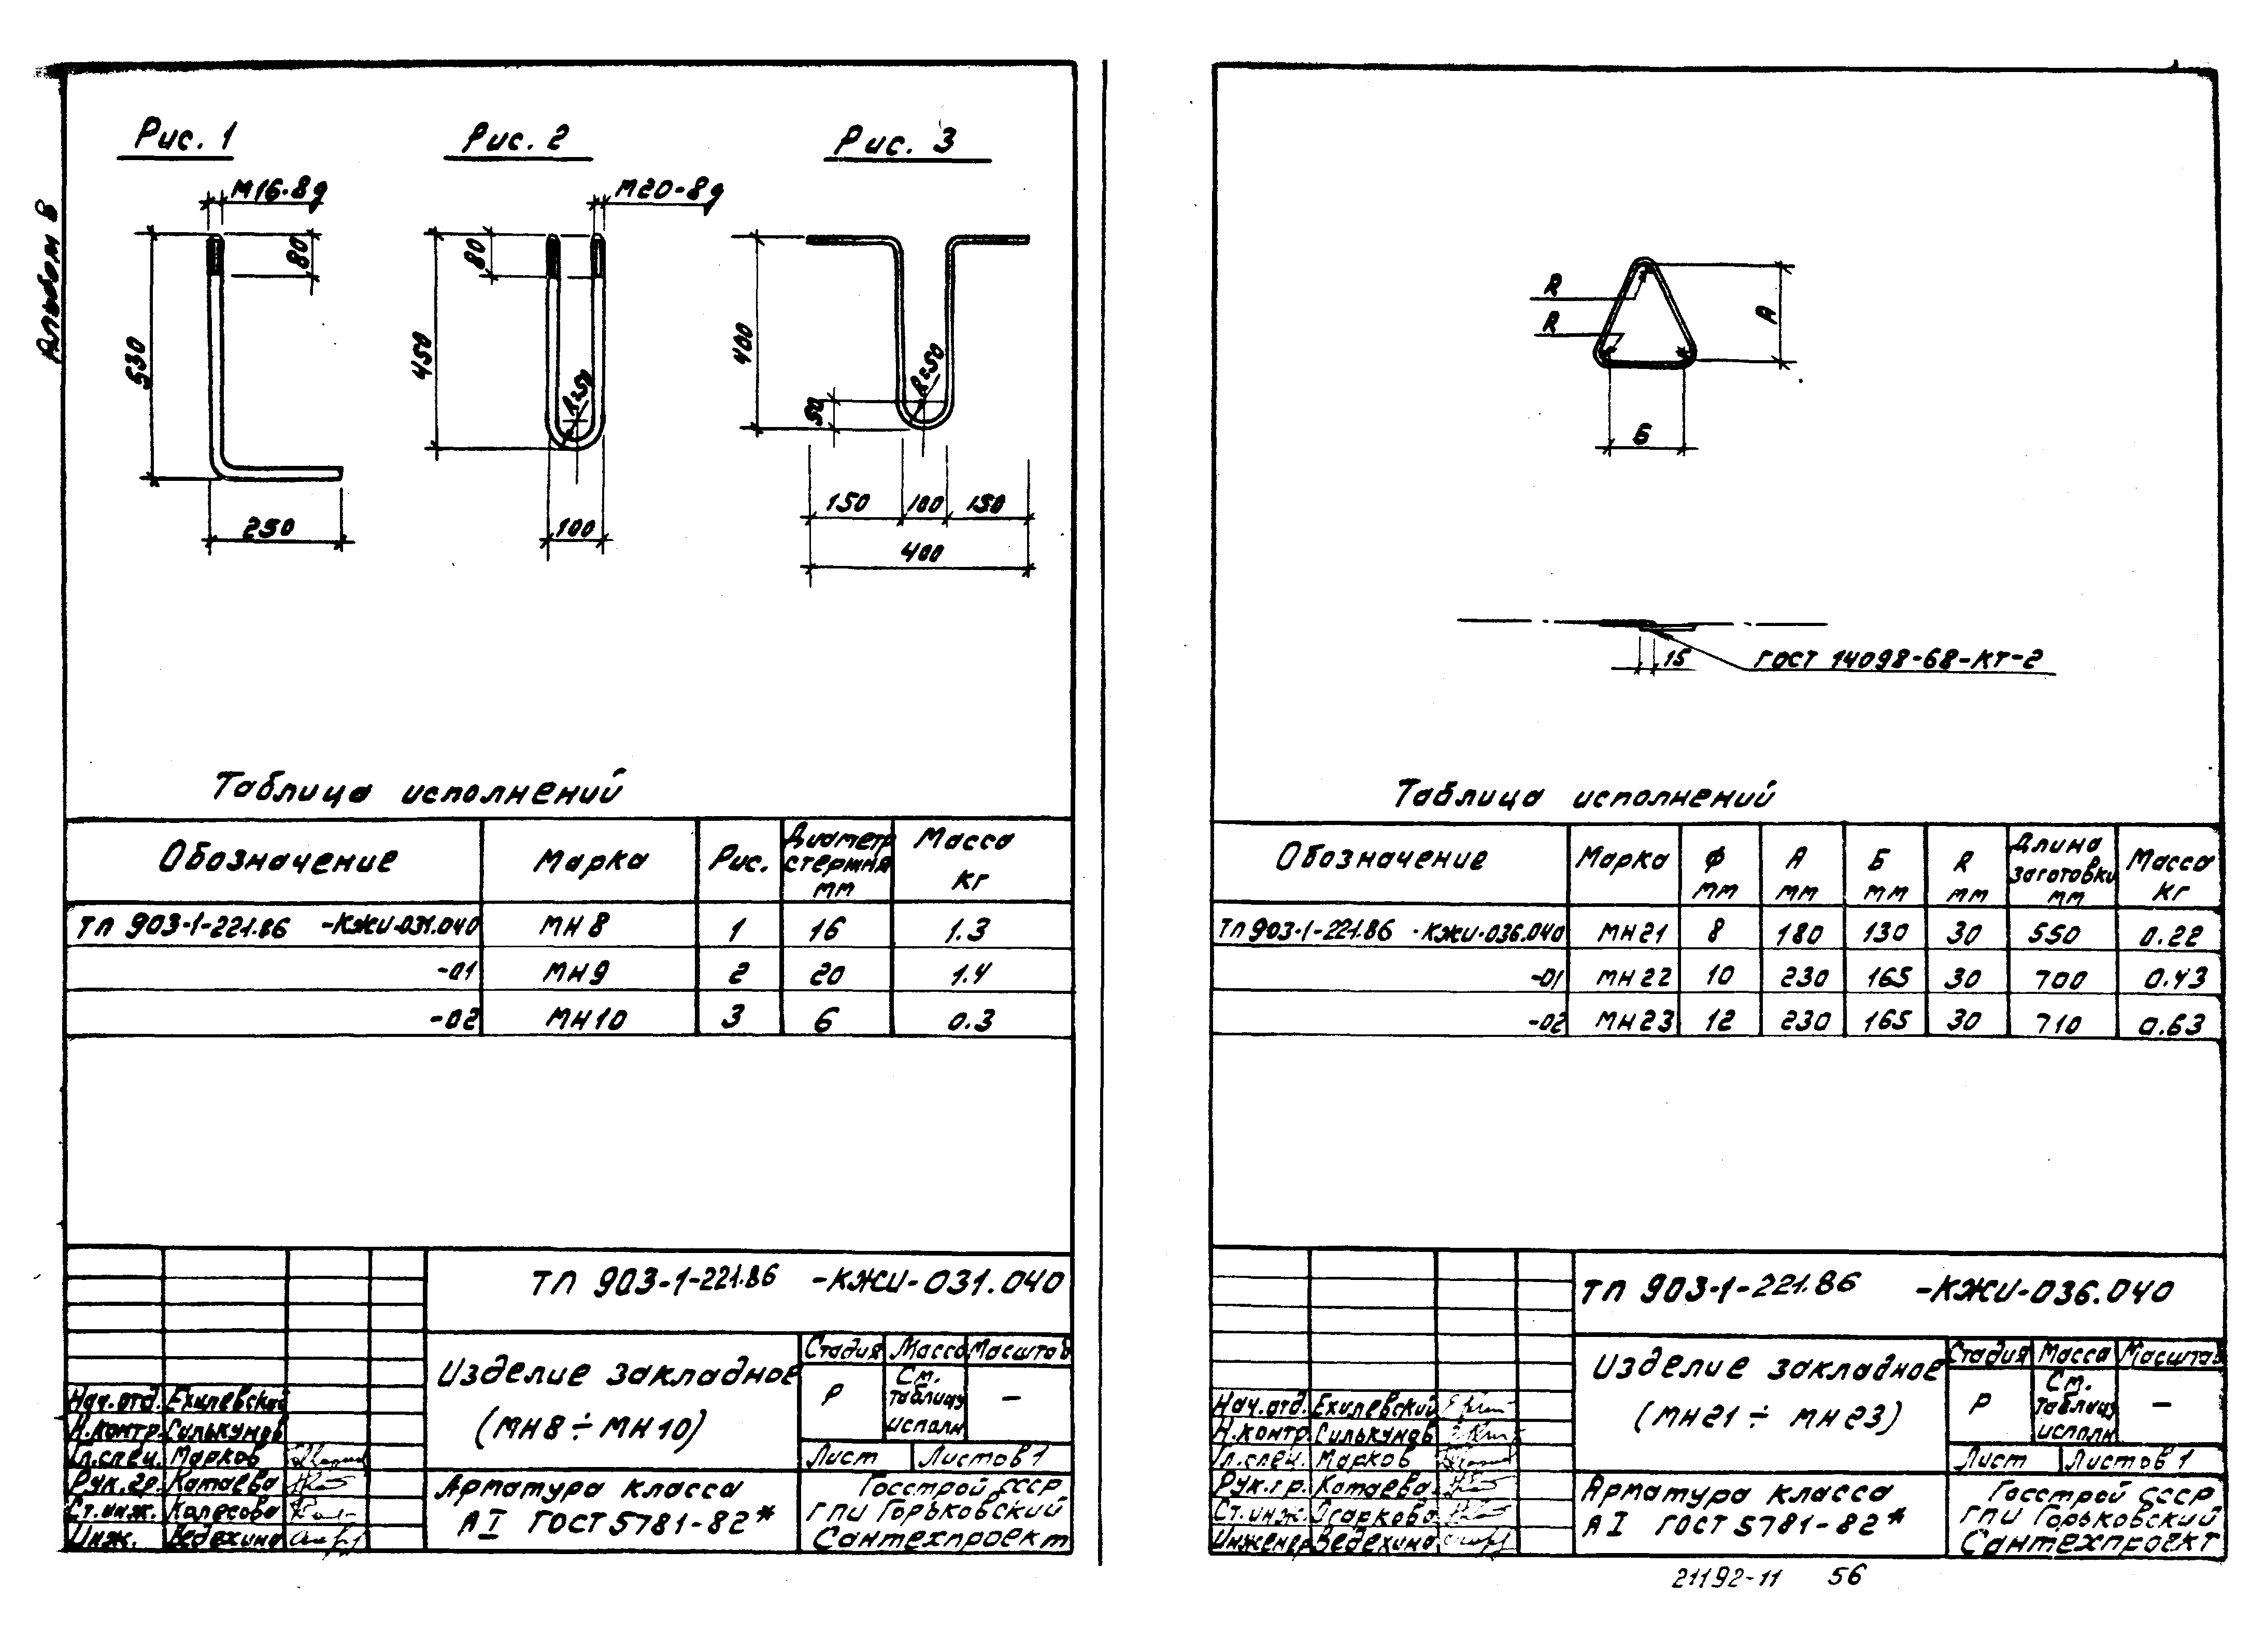 Альбом 8
Рис. 1
Рис. 2
Рис. 3
М16-8g
М20-8g
80
530
250
80
450
R=50
100
400
50
R=50
150 100 150
400
Таблица исполнений
Обозначение Марка Рис. Диаметр стержня мм Масса кг
ТП 903-1-221.86 -КЖИ-031.040 МН8 1 16 1.3
-01 МН9 2 20 1.4
-02 МН10 3 6 0.3
ТП 903-1-221.86 -КЖИ-031.040
Изделие закладное
(МН8 ÷ МН10)
Стадия Масса Масштаб
Р См. таблицу исполн —
Лист Листов 1
Нач.отд. Ехилевский
Н.контр. Силькунов
Гл.спец. Марков
Рук.гр. Катаева
Ст.инж. Колесова
Инж. Ведехина
Арматура класса
АI ГОСТ 5781-82*
Госстрой СССР
ГПИ Горьковский
Сантехпроект
R
R
А
Б
15
ГОСТ 14098-68-КТ-2
Таблица исполнений
Обозначение Марка Ф мм А мм Б мм R мм Длина заготовки мм Масса кг
ТП 903-1-221.86 -КЖИ-036.040 МН21 8 180 130 30 550 0.22
-01 МН22 10 230 165 30 700 0.43
-02 МН23 12 230 165 30 710 0.63
ТП 903-1-221.86 -КЖИ-036.040
Изделие закладное
(МН21 ÷ МН23)
Стадия Масса Масштаб
Р См. таблицу исполн —
Лист Листов 1
Нач.отд. Ехилевский
Н.контр. Силькунов
Гл.спец. Марков
Рук.гр. Катаева
Ст.инж. Огаркова
Инженер Ведехина
Арматура класса
АI ГОСТ 5781-82*
Госстрой СССР
ГПИ Горьковский
Сантехпроект
21192-11 56